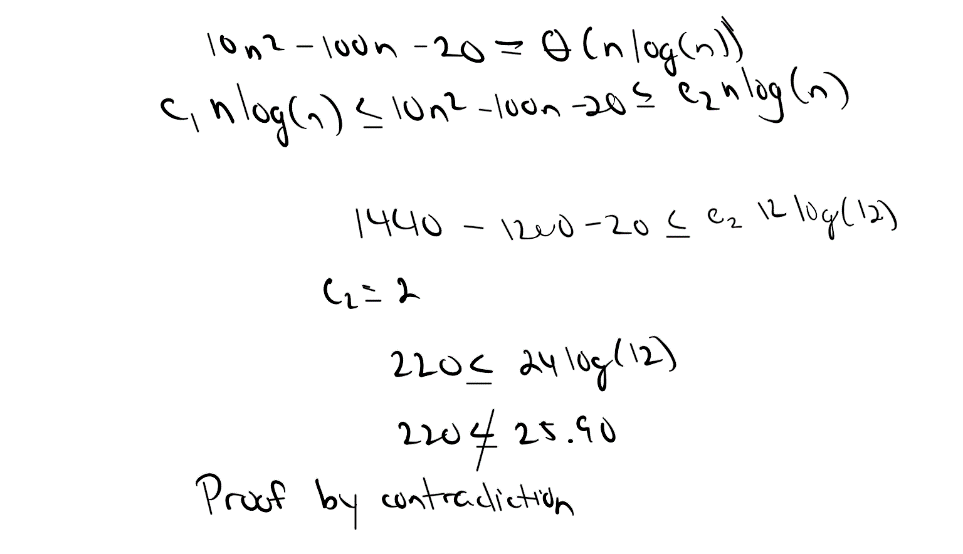 10n² - 100n - 20 = θ(n log(n))
c₁ n log(n) ≤ 10n² - 100n - 20 ≤ c₂ n log(n)
1440 - 1200 - 20 ≤ c₂ 12 log(12)
c₂ = 2
220 ≤ 24 log(12)
220 ≰ 25.90
Proof by contradiction